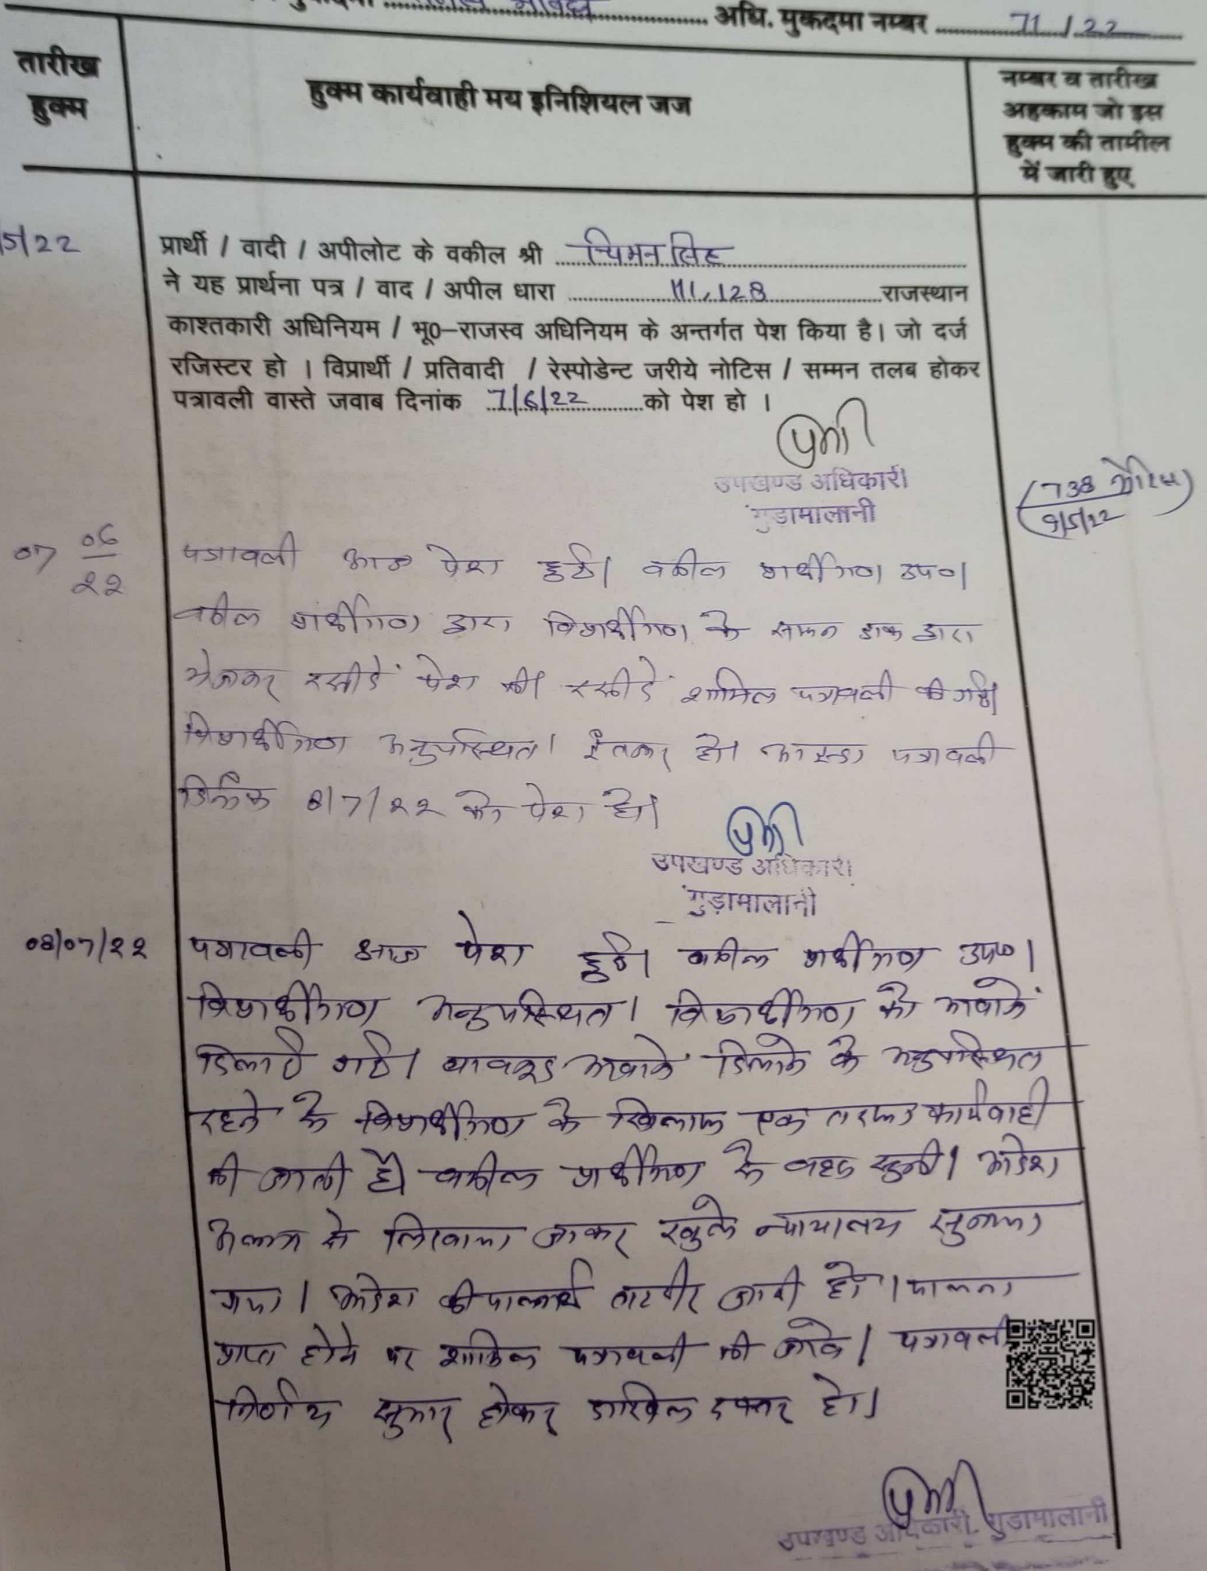 अधि. मुकदमा नम्बर 71/22
तारीख हुक्म
हुक्म कार्यवाही मय इनिशियल जज
नम्बर व तारीख
अहकाम जो इस
हुक्म की तामील
में जारी हुए
5/22
प्रार्थी / वादी / अपीलोट के वकील श्री चिमनसिंह
ने यह प्रार्थना पत्र / वाद / अपील धारा 111,128 राजस्थान
काश्तकारी अधिनियम / भू0-राजस्व अधिनियम के अन्तर्गत पेश किया है। जो दर्ज
रजिस्टर हो । विप्रार्थी / प्रतिवादी / रेस्पोडेन्ट जरीये नोटिस / सम्मन तलब होकर
पत्रावली वास्ते जवाब दिनांक 7/6/22 को पेश हो ।
उपखण्ड अधिकारी
गुडामालानी
738
9/5/22
07 06/22
पत्रावली आज पेश हुई। वकील प्रार्थीगण उप०।
वकील प्रार्थीगण द्वारा विप्रार्थीगण के सम्मन डाक द्वारा
भेजकर रसीदें पेश की। रसीदें शामिल पत्रावली की गई।
विप्रार्थीगण अनुपस्थित। इंतजार हो। आइन्दा पत्रावली
दिनांक 8/7/22 को पेश हो।
उपखण्ड अधिकारी
गुड़ामालानी
08/07/22
पत्रावली आज पेश हुई। वकील प्रार्थीगण उप०।
विप्रार्थीगण अनुपस्थित। विप्रार्थीगण को आवाजें
दिलाई गई। बावजूद आवाजें दिलाने के अनुपस्थित
रहने से विप्रार्थीगण के खिलाफ एक तरफा कार्यवाही
की जाती है। वकील प्रार्थीगण से बहस सुनी। आदेश
अलग से लिखवाया जाकर खुले न्यायालय सुनाया
गया। आदेश की पालनार्थ तहरीर जारी हो। पालना
प्राप्त होने पर शामिल पत्रावली की जावे। पत्रावली
निर्णय सुमार होकर दाखिल दफ्तर हो।
उपखण्ड अधिकारी, गुडामालानी